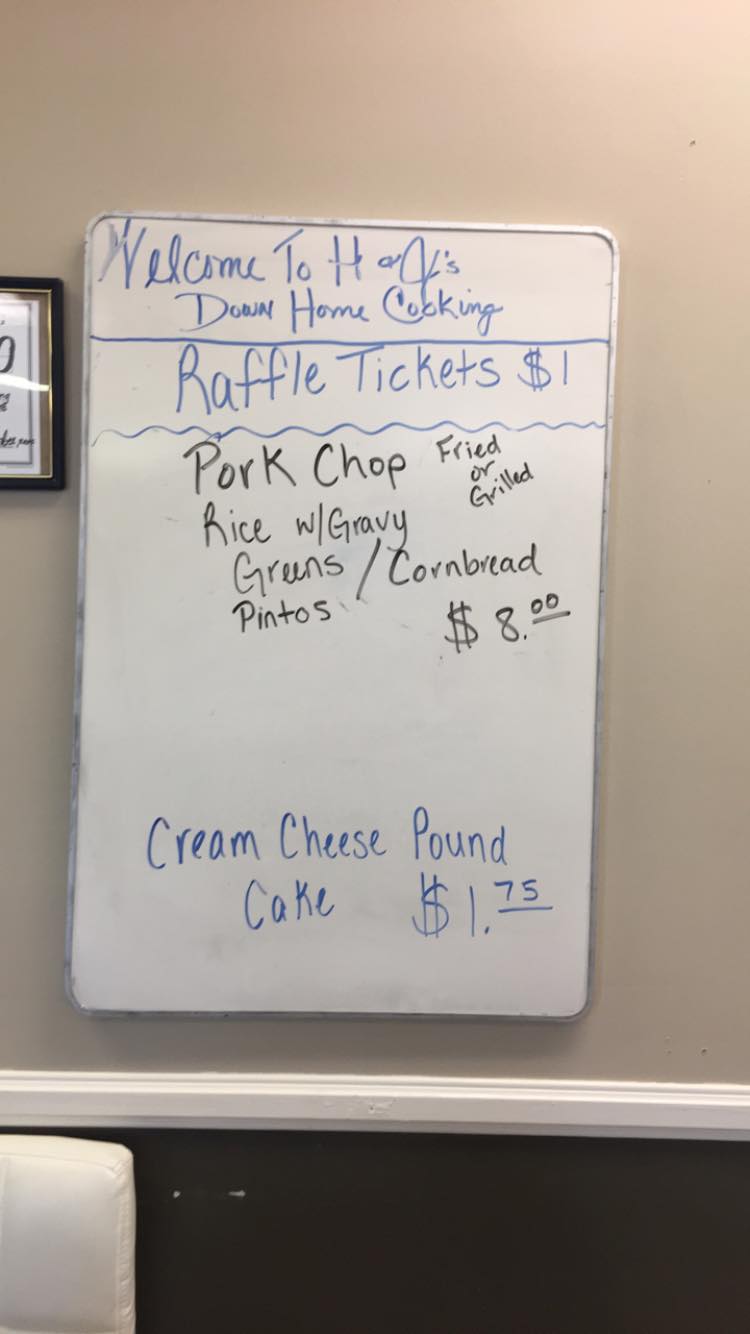 Welcome To H & J's
Down Home Cooking
Raffle Tickets $1
Pork Chop Fried
or
Grilled
Rice w/Gravy
Greens / Cornbread
Pintos $8.00
Cream Cheese Pound
Cake $1.75